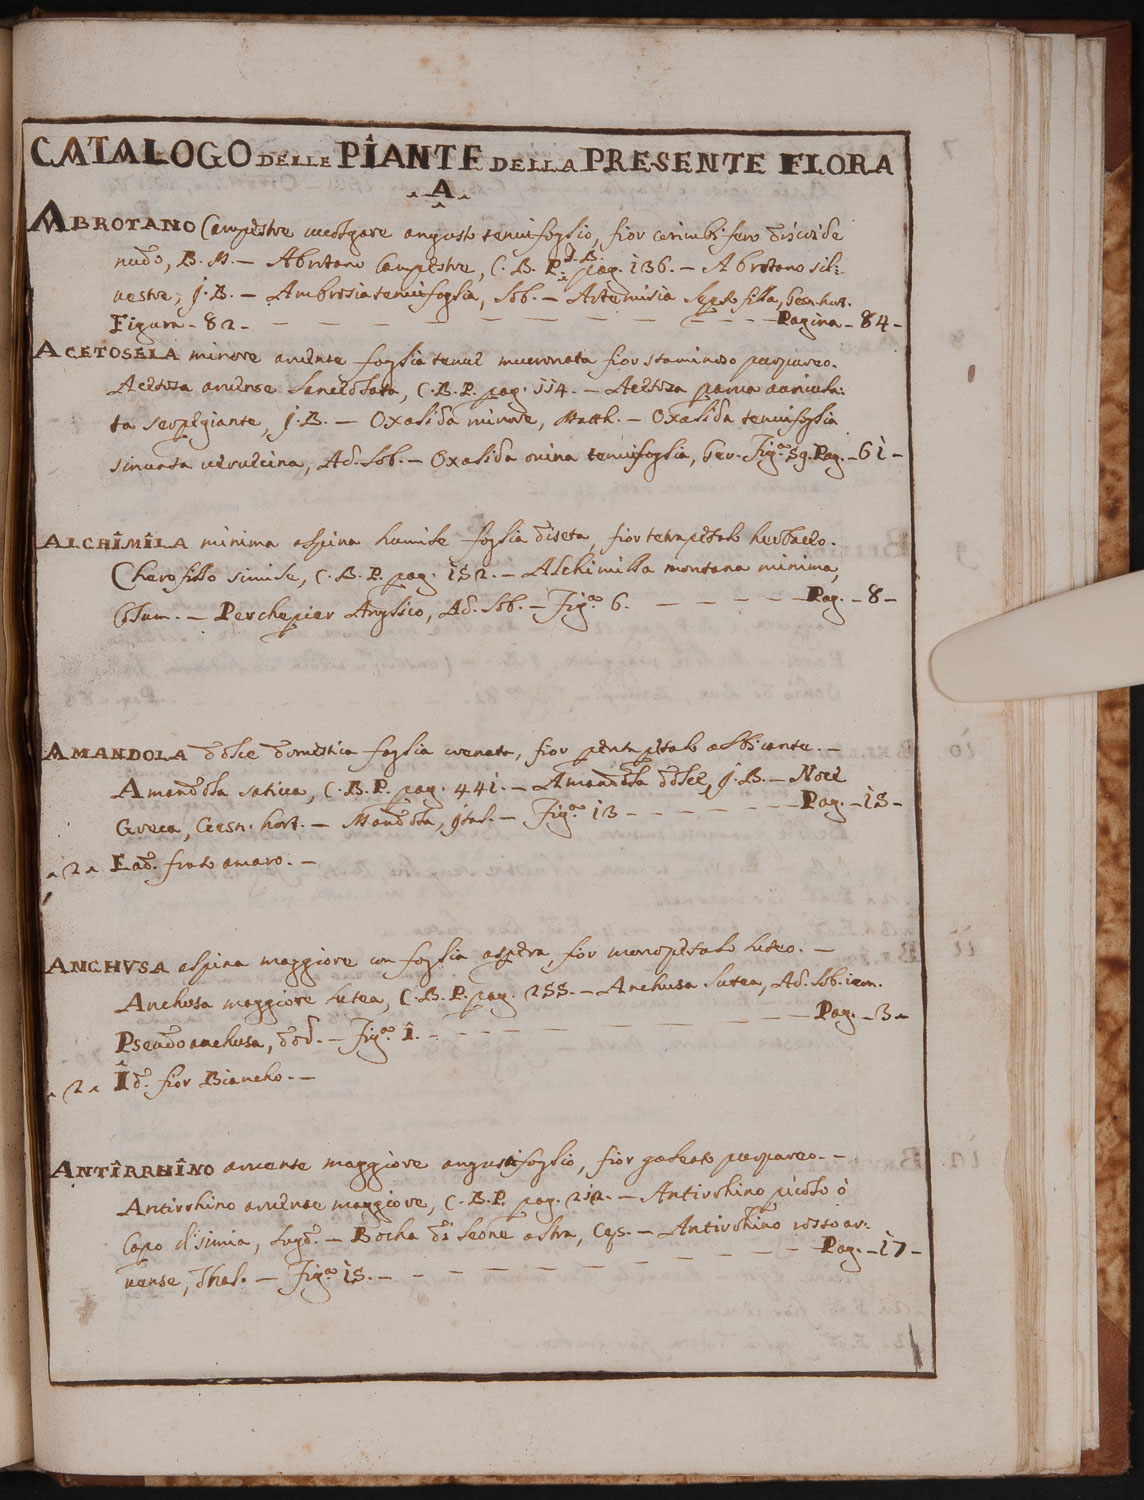 CATALOGO DELLE PIANTE DELLA PRESENTE FLORA
A
ABROTANO Campestre uuolgare angusto tenuifoglio, fior corimbifero discoide
nudo, B. M. - Abrotano Campestre, C. B. P. pag. 136. - Abrotano sil:
uestre, J. B. - Ambrosia tenuifoglia, Lob. - Artemisia Gesn. hort.
Figura - 82 - Pagina - 84 -
ACETOSELA minore aruense foglia tenue mucronata fior staminoso purpureo.
Acetosa aruense lanceolata, C. B. P. pag. 114. - Acetosa parua auricula:
ta serpegiante, J. B. - Oxalida minore, Matth. - Oxalida tenuifoglia
sinuata ueruecina, Ad. Lob. - Oxalida ouina tenuifoglia, Ger. Figa. 59. Pag. - 61 -
ALCHIMILA minima alpina humile foglia diseta, fior tetrapetalo herbaceo.
Cherofillo simile, C. B. P. pag. 152. - Alchimilla montana minima,
Colum. - Perchepier Anglico, Ad. Lob. - Figa. 6. Pag. - 8 -
AMANDOLA dolce domestica foglia crenata, fior pentapetalo albicante. -
Amandola satiua, C. B. P. pag. 441. - Amandola dolce, J. B. - Noce
Greca, Gesn. hort. - Mandola, Ital. - Figa. 13 - Pag. - 15 -
2 Ead. fruto amaro. -
ANCHVSA alpina maggiore con foglia aspera, fior monopetalo luteo. -
Anchusa maggiore lutea, C. B. P. pag. 255. - Anchusa lutea, Ad. Lob. icon.
Pseudoanchusa, dod. - Figa. 1. - Pag. - 3 -
2 Id. fior Biancho. -
ANTIRRHINO aruense maggiore angustifoglio, fior galeato purpureo. -
Antirrhino aruense maggiore, C. B. P. pag. 212. - Antirrhino picolo ò
Capo d'simia, Lugd. - Bocha di Leone altra, Cæs. - Antirrhino rosso ar:
uense, Thal. - Figa. 15. - Pag. - 17 -